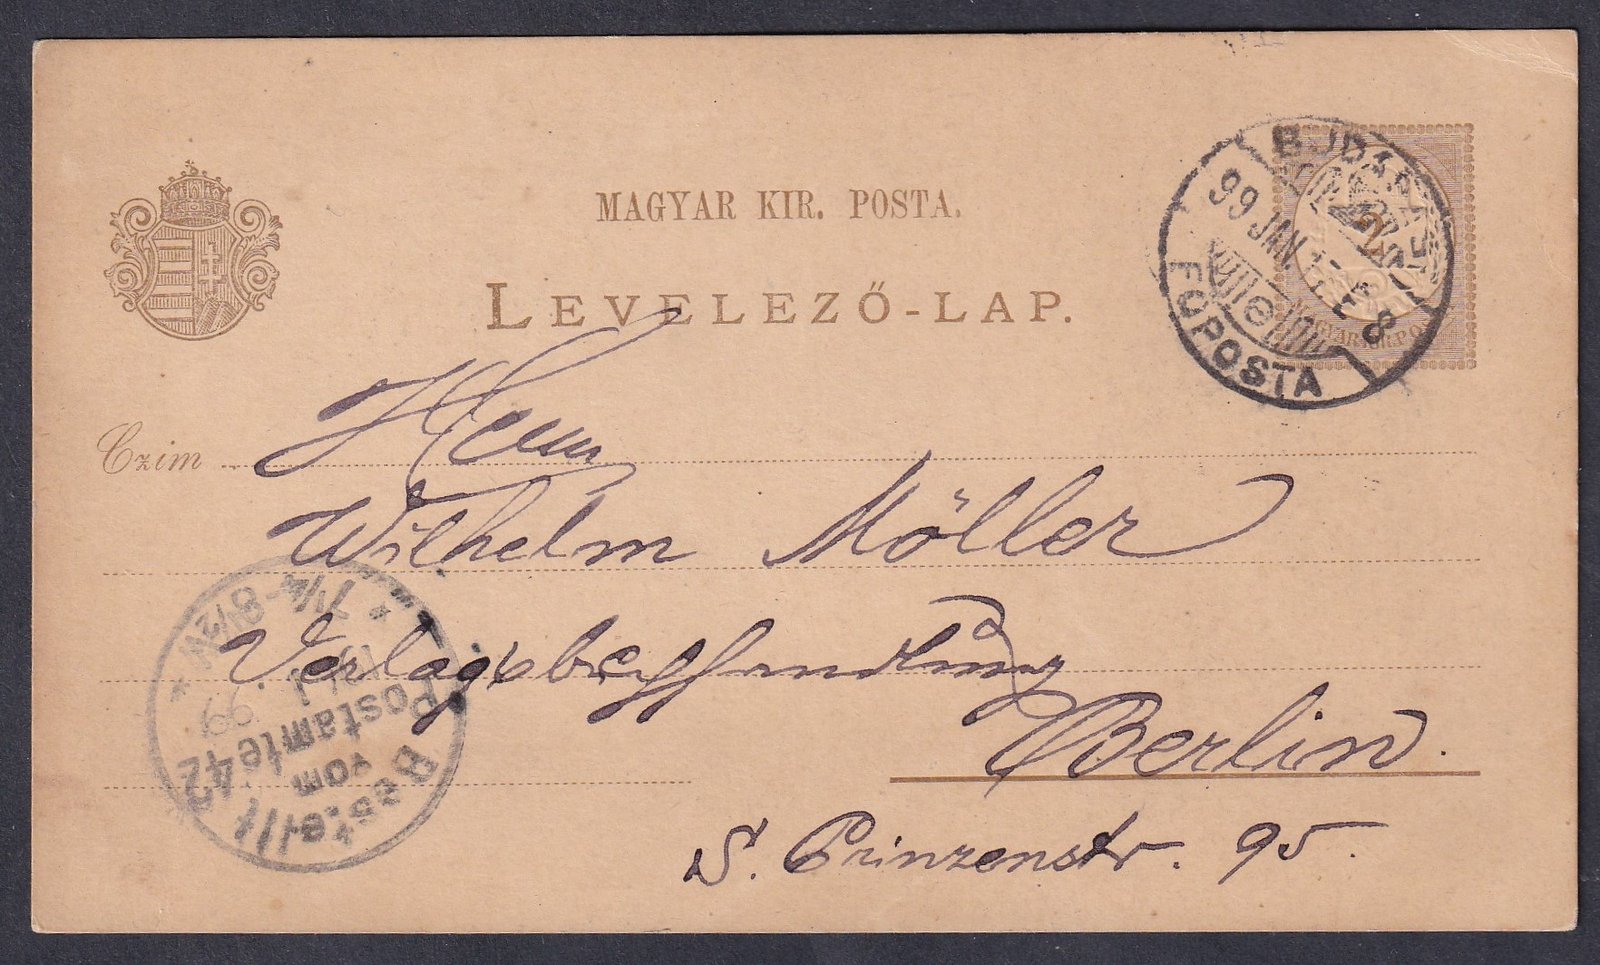 MAGYAR KIR. POSTA.
LEVELEZŐ-LAP.
BUDAPEST
99 JAN.
8
FŐPOSTA
MAGYAR KIR. POSTA
Czim
Herrn
Wilhelm Möller
Verlagsbuchhandlung
Berlin.
S. Prinzenstr. 95.
Bestellt
vom
Postamte 42
1 99
7¼-8½ V